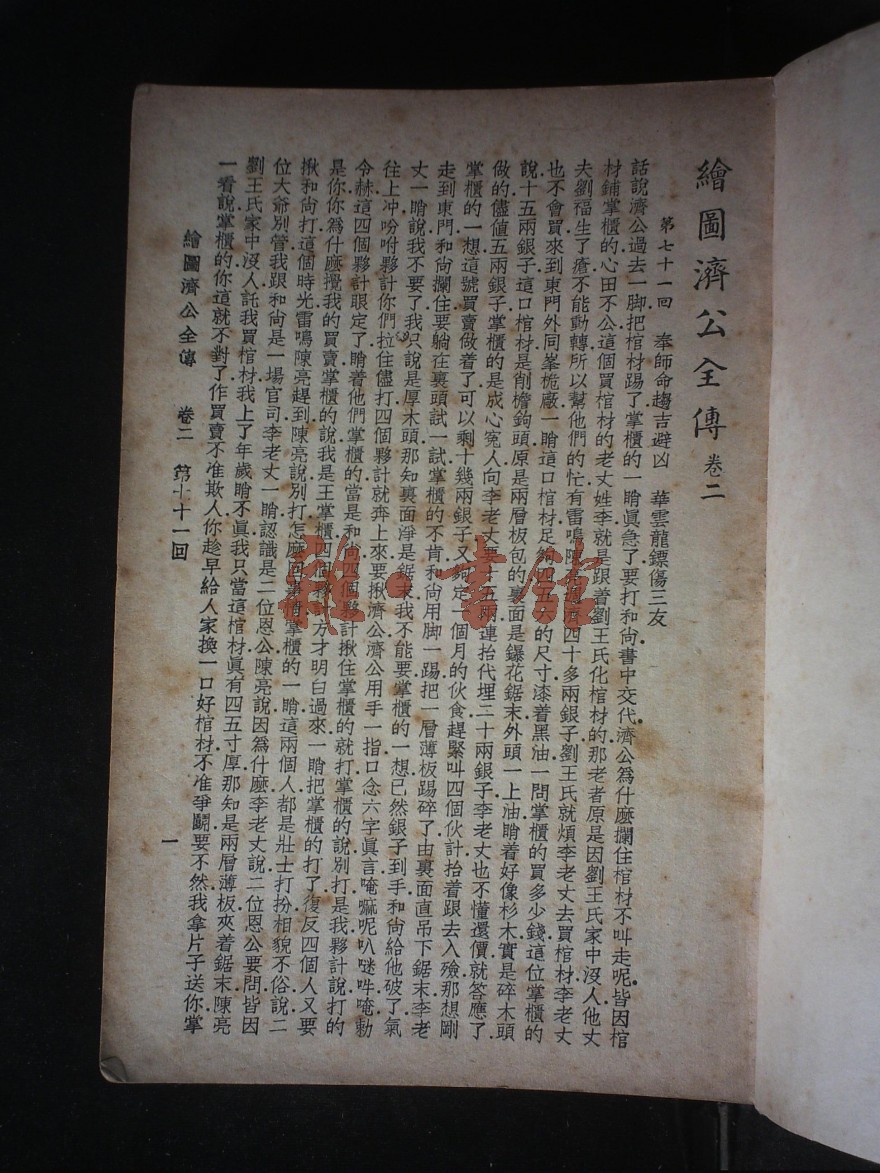 繪圖濟公全傳 卷二
第七十一回 奉師命趨吉避凶 華雲龍鏢傷三友
話說濟公過去一脚把棺材踢了掌櫃的一睄眞急了要打和尙書中交代濟公爲什麽攔住棺材不叫走呢皆因棺
材鋪掌櫃的心田不公這個買棺材的老丈姓李就是跟着劉王氏化棺材的那老者原是因劉王氏家中沒人他丈
夫劉福生了瘡不能動轉所以幫他們的忙有雷鳴陳亮周濟四十多兩銀子劉王氏就煩李老丈去買棺材李老丈
也不會買來到東門外同峯桅廠一睄這口棺材足夠四五寸的尺寸漆着黑油一問掌櫃的買多少錢這位掌櫃的
說十五兩銀子這口棺材是削檐鉤頭原是兩層板包的裏面是鑤花鋸末外頭一上油睄着好像杉木實是碎木頭
做的儘值五兩銀子掌櫃的是成心寃人向李老丈要十五兩連抬代埋二十兩銀子李老丈也不懂還價就答應了
掌櫃的一想這號買賣做着了可以剩十幾兩銀子又夠定一個月的伙食趕緊叫四個伙計抬着跟去入殮那想剛
走到東門和尙攔住要躺在裏頭試一試掌櫃的不肯和尙用脚一踢把一層薄板踢碎了由裏面直吊下鋸末李老
丈一睄說我不要了我只說是厚木頭那知裏面淨是鋸末我不能要掌櫃的一想已然銀子到手和尙給他破了氣
往上冲吩咐夥計你們拉住儘打四個夥計就奔上來要揪濟公濟公用手一指口念六字眞言唵嘛呢叭咪吽唵勅
令赫這四個夥計眼定了睄着他們掌櫃的當是和尙四個夥計揪住掌櫃的就打掌櫃的說別打是我夥計說打的
是你你爲什麽攪我的買賣掌櫃的說我是王掌櫃四個夥計方才明白過來一睄把掌櫃的打了復反四個人又要
揪和尙打這個時光雷鳴陳亮趕到陳亮說別打怎麽回事情掌櫃的一睄這兩個人都是壯士打扮相貌不俗說二
位大爺別管我跟和尙是一塲官司李老丈一睄認識是二位恩公陳亮說因爲什麽李老丈說二位恩公要問皆因
劉王氏家中沒人託我買棺材我上了年歲睄不眞我只當這棺材眞有四五寸厚那知是兩層薄板夾着鋸末陳亮
一看說掌櫃的你這就不對了作買賣不准欺人你趁早給人家換一口好棺材不准爭鬪要不然我拿片子送你掌
繪圖濟公全傳 卷二 第七十一回 一
雜·書館